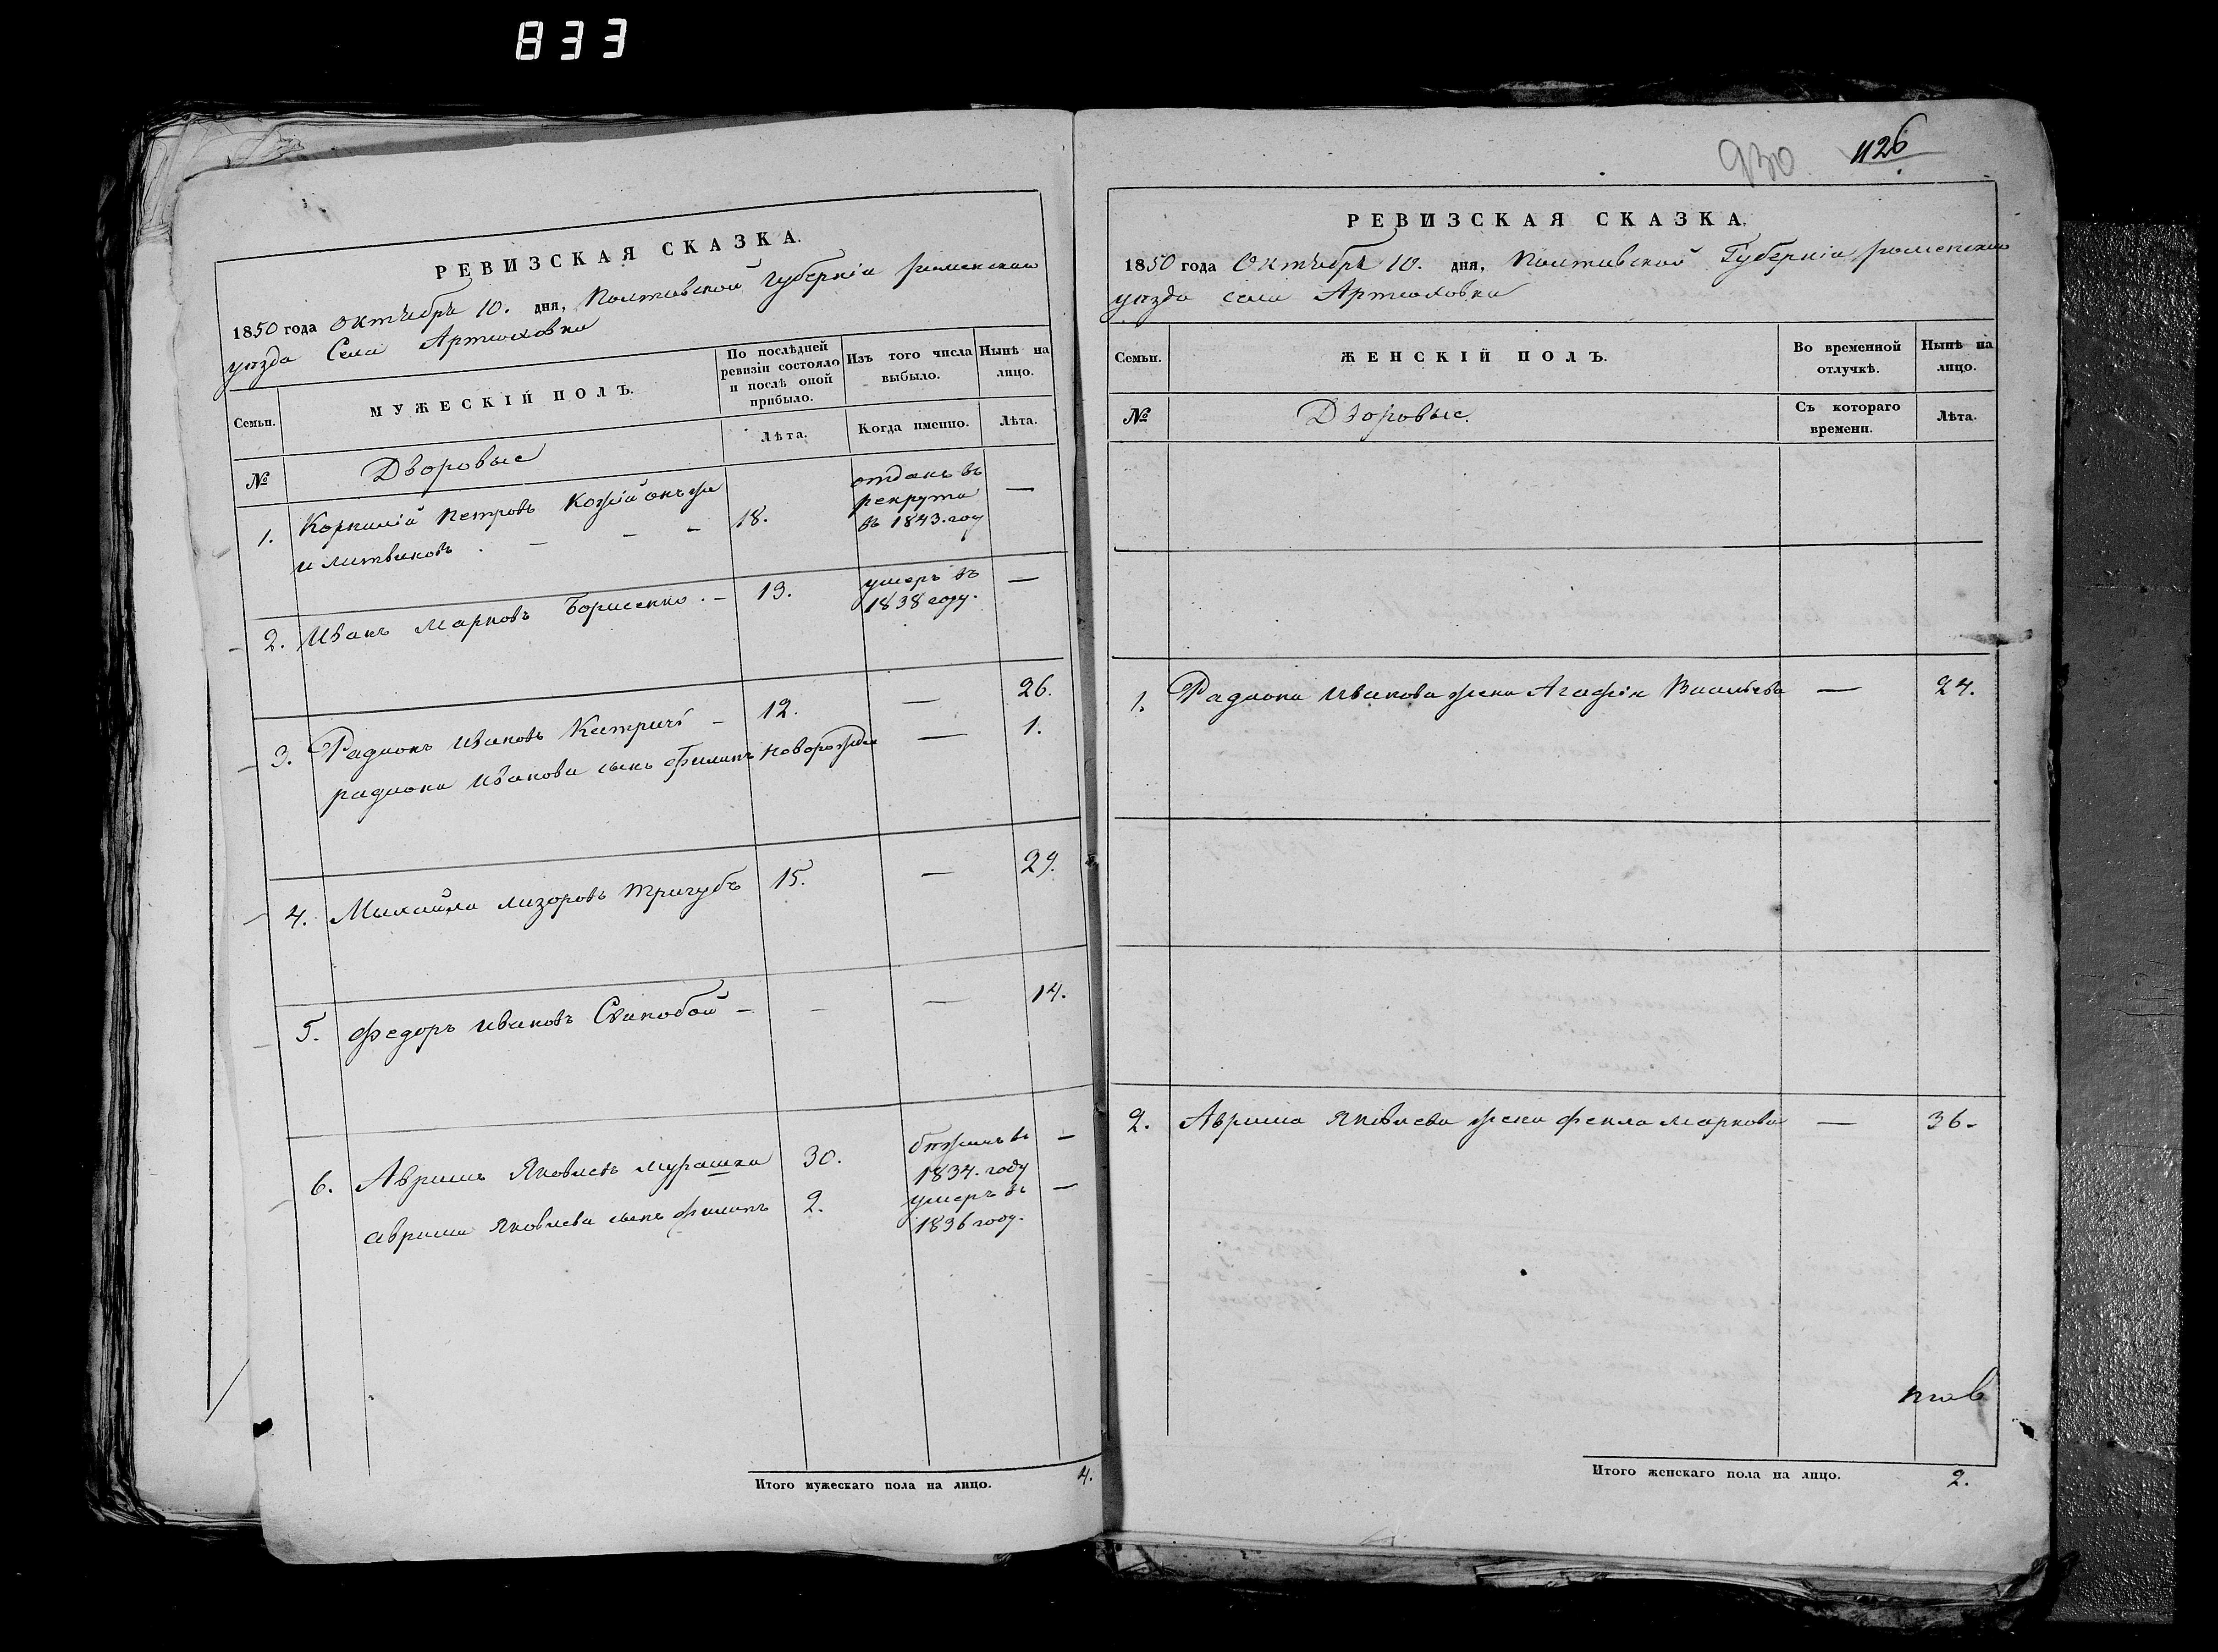 833
РЕВИЗСКАЯ СКАЗКА.
1850 года Октября 10. дня, Полтавской Губерніи роменскаго
уѣзда Села Артюховки
Семьи.
МУЖЕСКІЙ ПОЛЪ.
По послѣдней ревизіи состояло и послѣ оной прибыло.
Изъ того числа выбыло.
Нынѣ на лицо.
№
Лѣта.
Когда именно.
Лѣта.
Дворовые
1. Корнилій Петровъ онъ же 18. отданъ въ —
и литвиновъ . — — — рекрута
въ 1843. году
2. Иванъ Марковъ Борисенко . — 13. умеръ въ —
1838 году.
3. Радионъ Ивановъ Катричъ — 12. — 26.
радиона Иванова сынъ Филипъ новорожден — 1.
4. Михайла лизоровъ Тригубъ 15. — 29.
5. Федоръ Ивановъ Свинобой — — — 14.
6. Аврамъ Яковлевъ мурашка 30. бѣжалъ въ —
1834. году
аврама Яковлева сынъ филипъ 2. умеръ въ —
1836 году.
Итого мужескаго пола на лицо. 4.
930 1126
РЕВИЗСКАЯ СКАЗКА.
1850 года Октября 10. дня, Полтавской Губерніи роменскаго
уѣзда села Артюховки
Семьи.
ЖЕНСКІЙ ПОЛЪ.
Во временной отлучкѣ.
Нынѣ на лицо.
№
Дворовые.
Съ котораго времени.
Лѣта.
1. Радиона Иванова жена Агафія Васильева — 24.
2. Аврама Яковлева жена фекла маркова — 36.
Итого женскаго пола на лицо. 2.